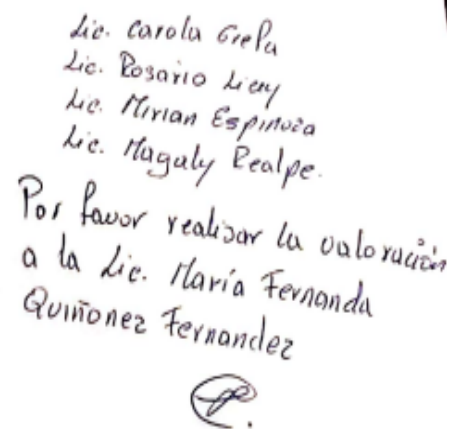 Lic. Carola
Lic. Rosario
Lic. Mirian Espinoza
Lic. Magaly Realpe.
Por favor realizar la valoración
a la Lic. María Fernanda
Quiñonez Fernandez